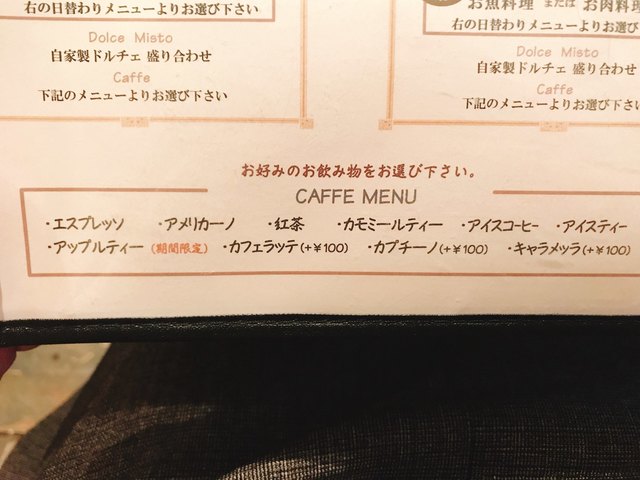 右の日替わりメニューよりお選び下さい
Dolce Misto
自家製ドルチェ 盛り合わせ
Caffe
下記のメニューよりお選び下さい
お魚料理 または お肉料理
右の日替わりメニューよりお選び下
Dolce Misto
自家製ドルチェ 盛り合わせ
Caffe
下記のメニューよりお選び下さい
お好みのお飲み物をお選び下さい。
CAFFE MENU
・エスプレッソ ・アメリカーノ ・紅茶 ・カモミールティー ・アイスコーヒー ・アイスティー
・アップルティー(期間限定) ・カフェラッテ(+¥100) ・カプチーノ(+¥100) ・キャラメッラ(+¥100)